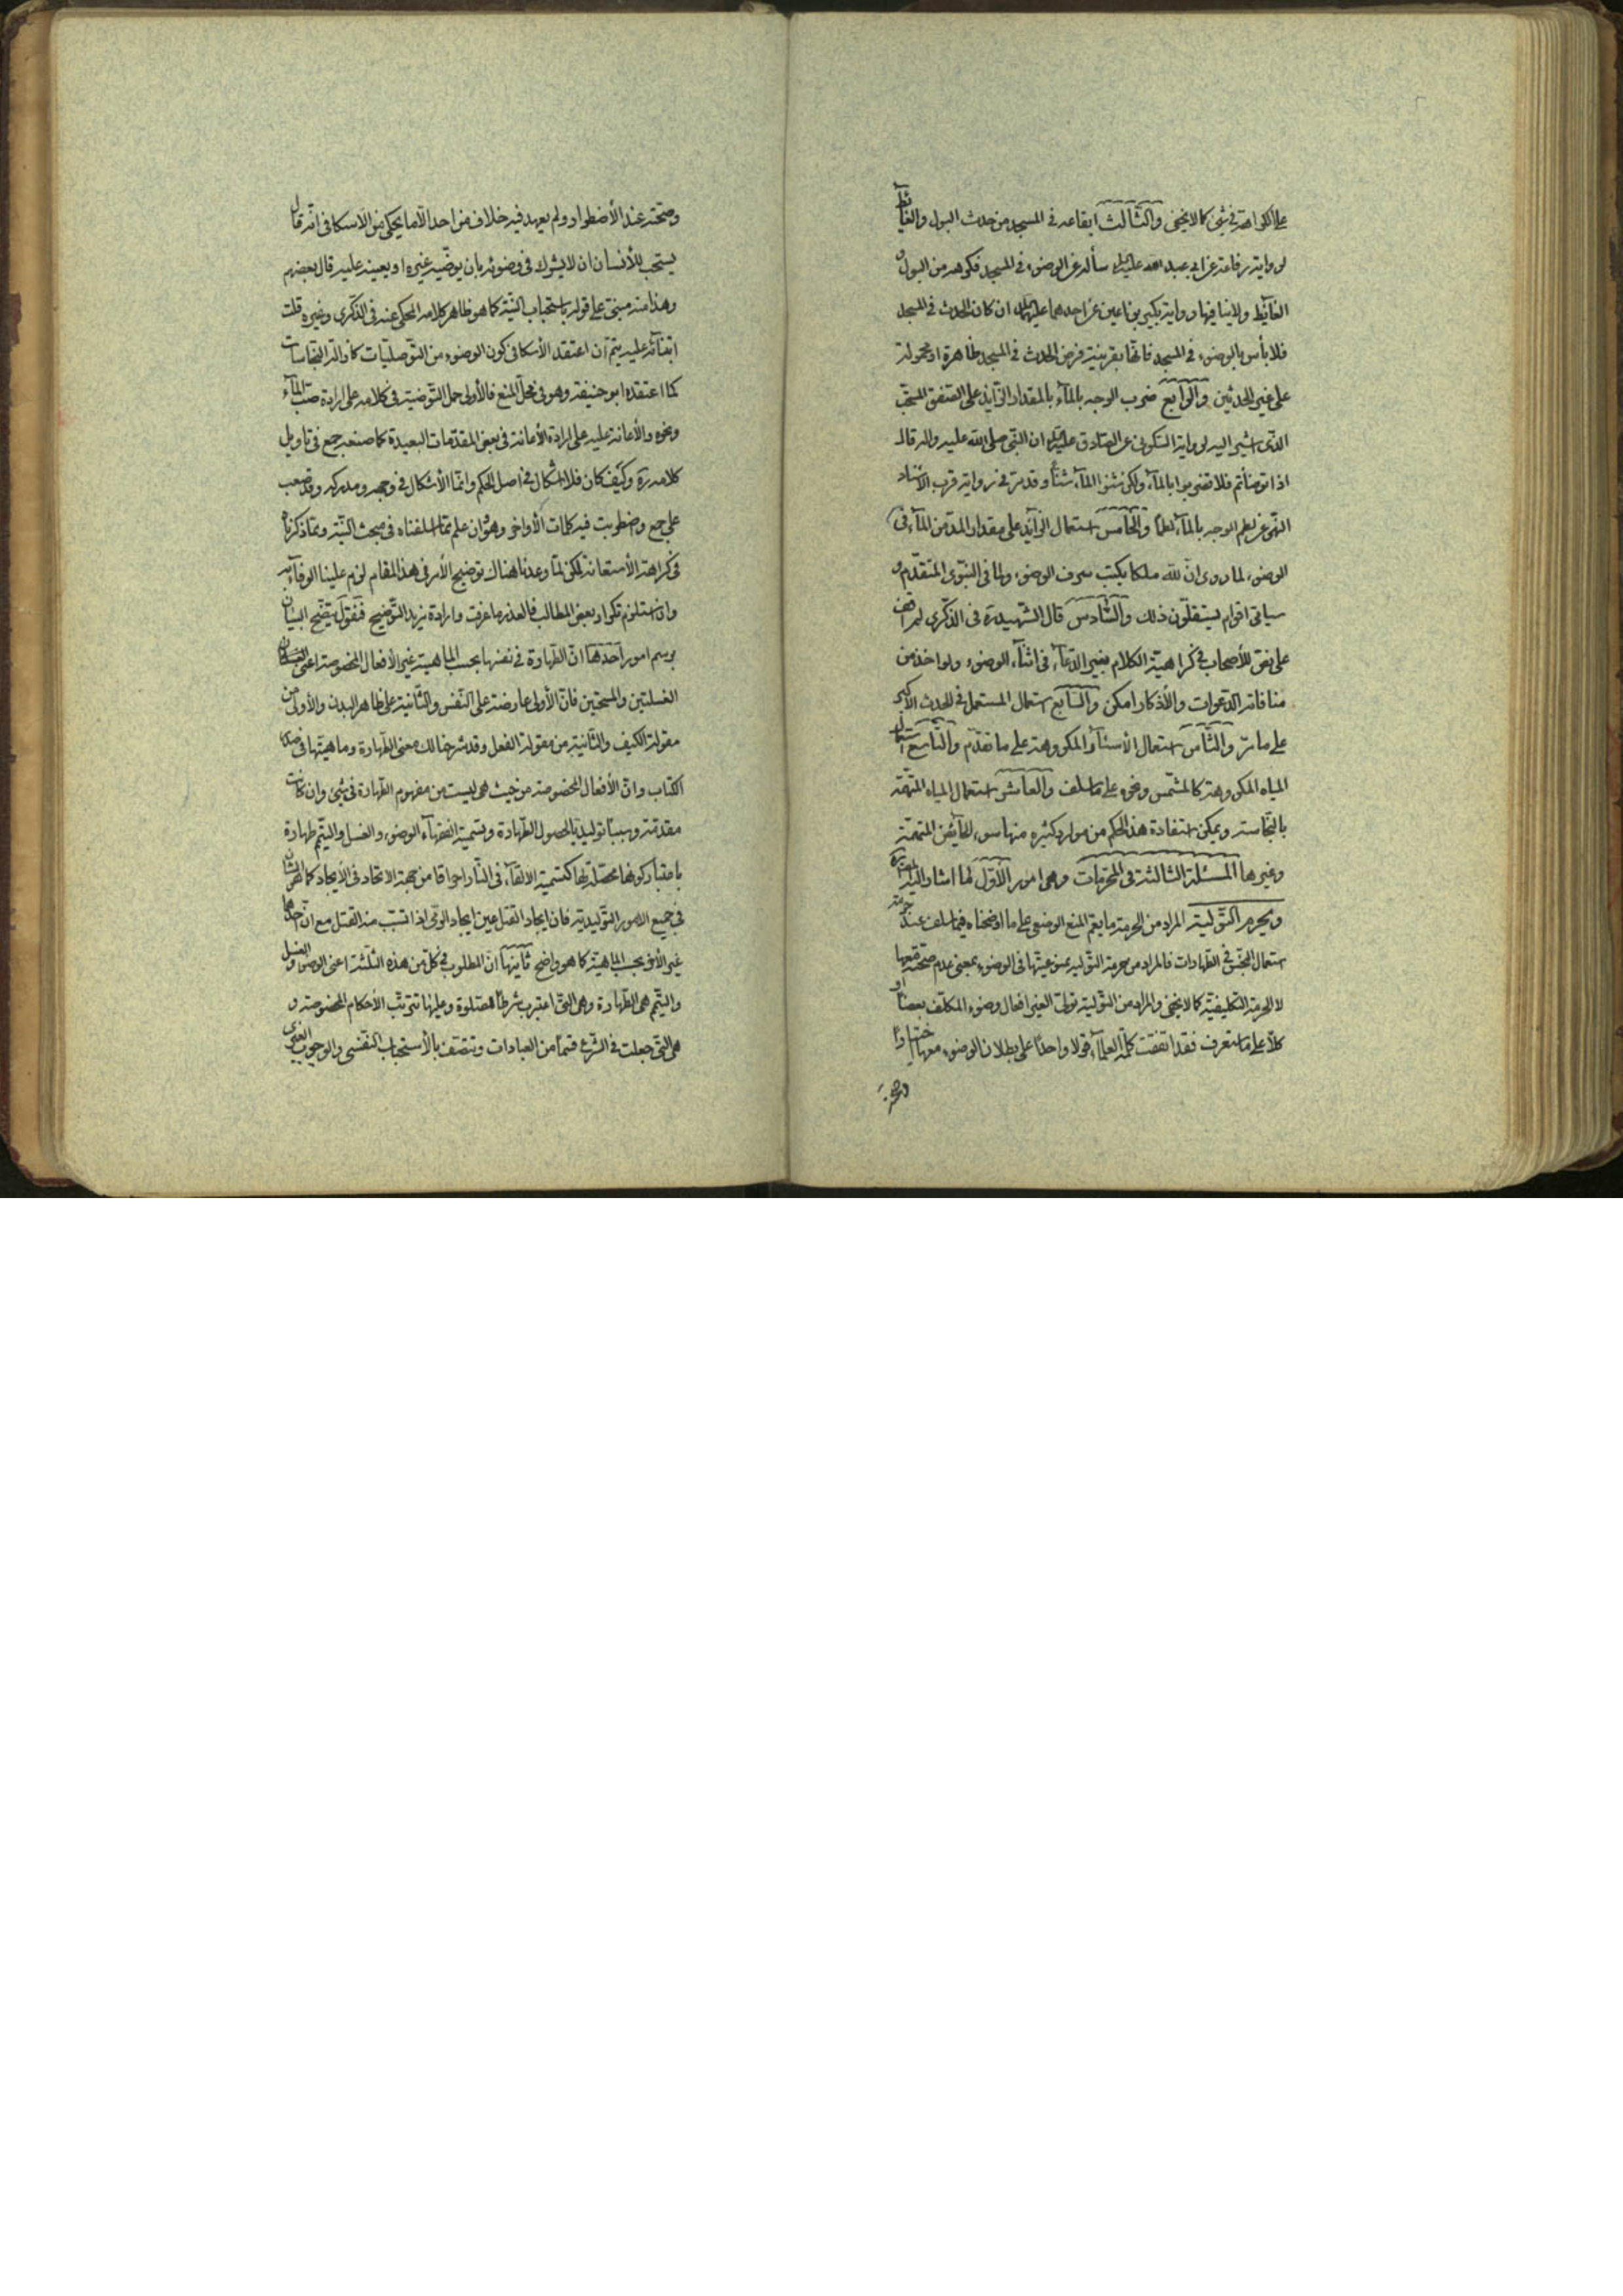 على الكراهة في شئ كما لا يخفى والثّالث ايقاعه في المسجد من حدث البول والغائط
لرواية رفاعة عن ابي عبد الله عليه السلام سألته عن الوضوء في المسجد فكرهه من البول و
الغائط ولا ينافيها رواية بكير بن اعين عن احدهما عليهما السلام ان كان الحدث في المسجد
فلا بأس بالوضوء في المسجد فانّها بقرينة فرض الحدث في المسجد ظاهرة او محمولة
على غير الحدثين والرّابع ضرب الوجه بالمآء بالمقدار الزّايد على التصفق المستحبّ
الذّى اشير اليه لرواية السّكونى عن الصّادق عليه السلام ان النّبى صلى الله عليه واله قال
اذا توضأتم فلا تضربوا بالمآء ولكن شنوا المآء شنّاً وقد مرّ في رواية قرب الأسناد
النّهى عن لطم الوجه بالمآء لطماً والخامس استعمال الزّايد على مقدار المدّ من المآء فى
الوضوء لما روى انّ لله ملكا يكتب سرف الوضوء ولما فى النّبوّى المتقدّم و
سيأتى اقوام يستقلّون ذلك والسّادس قال الشّهيد ره فى الذّكرى لم اقف
على نصّ للأصحاب في كراهيّة الكلام بغير الدّعآء فى اثنآء الوضوء ولو اخذ من
منافاته الدّعوات والأذكار امكن والسّابع استعمال المستعمل في الحدث الأكبر
على ما مرّ والثّامن استعمال الأسئآر المكروهة على ما تقدّم والتّاسع استعمال
المياه المكروهة كالمشمّس ونحوه على ما سلف والعاشر استعمال المياه المتّهمة
بالنّجاسة ويمكن استفادة هذا الحكم من موارد كثيرة منها سؤر الحآئض المتّهمة
وغيرها المسئلة الثالثة فى المحرّمات وهى امور الأوّل ما اشار اليه المص بقوله
ويحرم التّولية المراد من الحرمة ما يعمّ المنع الوضعى على ما اوضحناه فيما سلف عند حرمة
استعمال النّجس في الطّهارات فالمراد من حرمة التّوليه ممنوعيّتها فى الوضوء بمعنى عدم صحّته معها
لا الحرمة التّكليفيّة كما لا يخفى والمراد من التّولية تولّى الغير افعال وضوء المكلّف بعضاً او
كلّاً على ما ستعرف فقد اتفقت كلمة العلمآء قولا واحدًا على بطلان الوضوء معها اختياراً
وصحّته
وصحّته عند الأضطرار ولم يعهد فيه خلاف من احد الّا ما يحكى من الاسكافى انّه قال
يستحب للأنسان ان لا يشرك فى وضوئه بان يوضّيه غيره او يعينه عليه قال بعضهم
وهذا منه مبنىّ على قوله باستحباب النّية كما هو ظاهر كلامه المحكى عنه فى الذّكرى وغيره قلت
ابتنائه عليه يتمّ ان اعتقد الأسكافى كون الوضوء من التّوصليّات كازالة النّجاسات
كما اعتقده ابو حنيفة وهو فى محلّ المنع فالأولى حمل التّوضية فى كلامه على ارادة صبّ المآء
ونحوه والأعانة عليه على ارادة الأعانة فى بعض المقدّمات البعيدة كما صنعه جمع فى تاويل
كلامه ره وكيف كان فلا اشكال في اصل الحكم وانّما الأشكال في وجهه ومدركه وقد صعب
على جمع واضطربت فيه كلمات الأواخر وهو وان علم ممّا اسلفناه فى مبحث النّيّة وممّا ذكرناه
فى كراهة الأستعانة لكن لمّا وعدنا هناك توضيح الأمر فى هذا المقام لزم علينا الوفآء به
وان استلزم تكرار بعض المطالب فالعذر ما عرفت وارادة مزيد التّوضيح فنقول يتّضح البيان
برسم امور احدها انّ الطّهارة فى نفسها بحسب الماهيّة غير الأفعال المخصوصة اعنى
الغسلتين والمسحتين فانّ الأولى عارضة على النّفس والثّانية على ظاهر البدن والأولى من
مقولة الكيف والثّانية من مقولة الفعل وقد شرحنا لك معنى الطّهارة وماهيّتها فى صدر
الكتاب وانّ الأفعال المخصوصة من حيث هى ليست من مفهوم الطّهارة فى شئ وان كانت
مقدّمة وسبباً توليديّاً لحصول الطّهارة وتسمية الفقهآء الوضوء والغسل والتيمّم طهارة
باعتبار كونها محصّلة لها كتسمية الالقآء فى النّار احراقا من جهة الاتحاد فى الأيجاد كما هو الشّان
في جميع الامور التّوليديّة فان ايجاد القتل عين ايجاد الرّمى اذا تسبّب منه القتل مع انّ احدهما
غير الأخر بحسب الماهيّة كما هو واضح ثانيها انّ المطلوب في كلّ من هذه الثّلثة اعنى الوضوء والغسل
والتيمّم هى الطّهارة وهى الّتى اعتبرت شرطاً للصّلوة وعليها تترتّب الأحكام المخصوصة و
هى الّتى جعلت في الشّرع قسماً من العبادات وتتّصف بالأستحباب النّفسى والوجوب الغيرى